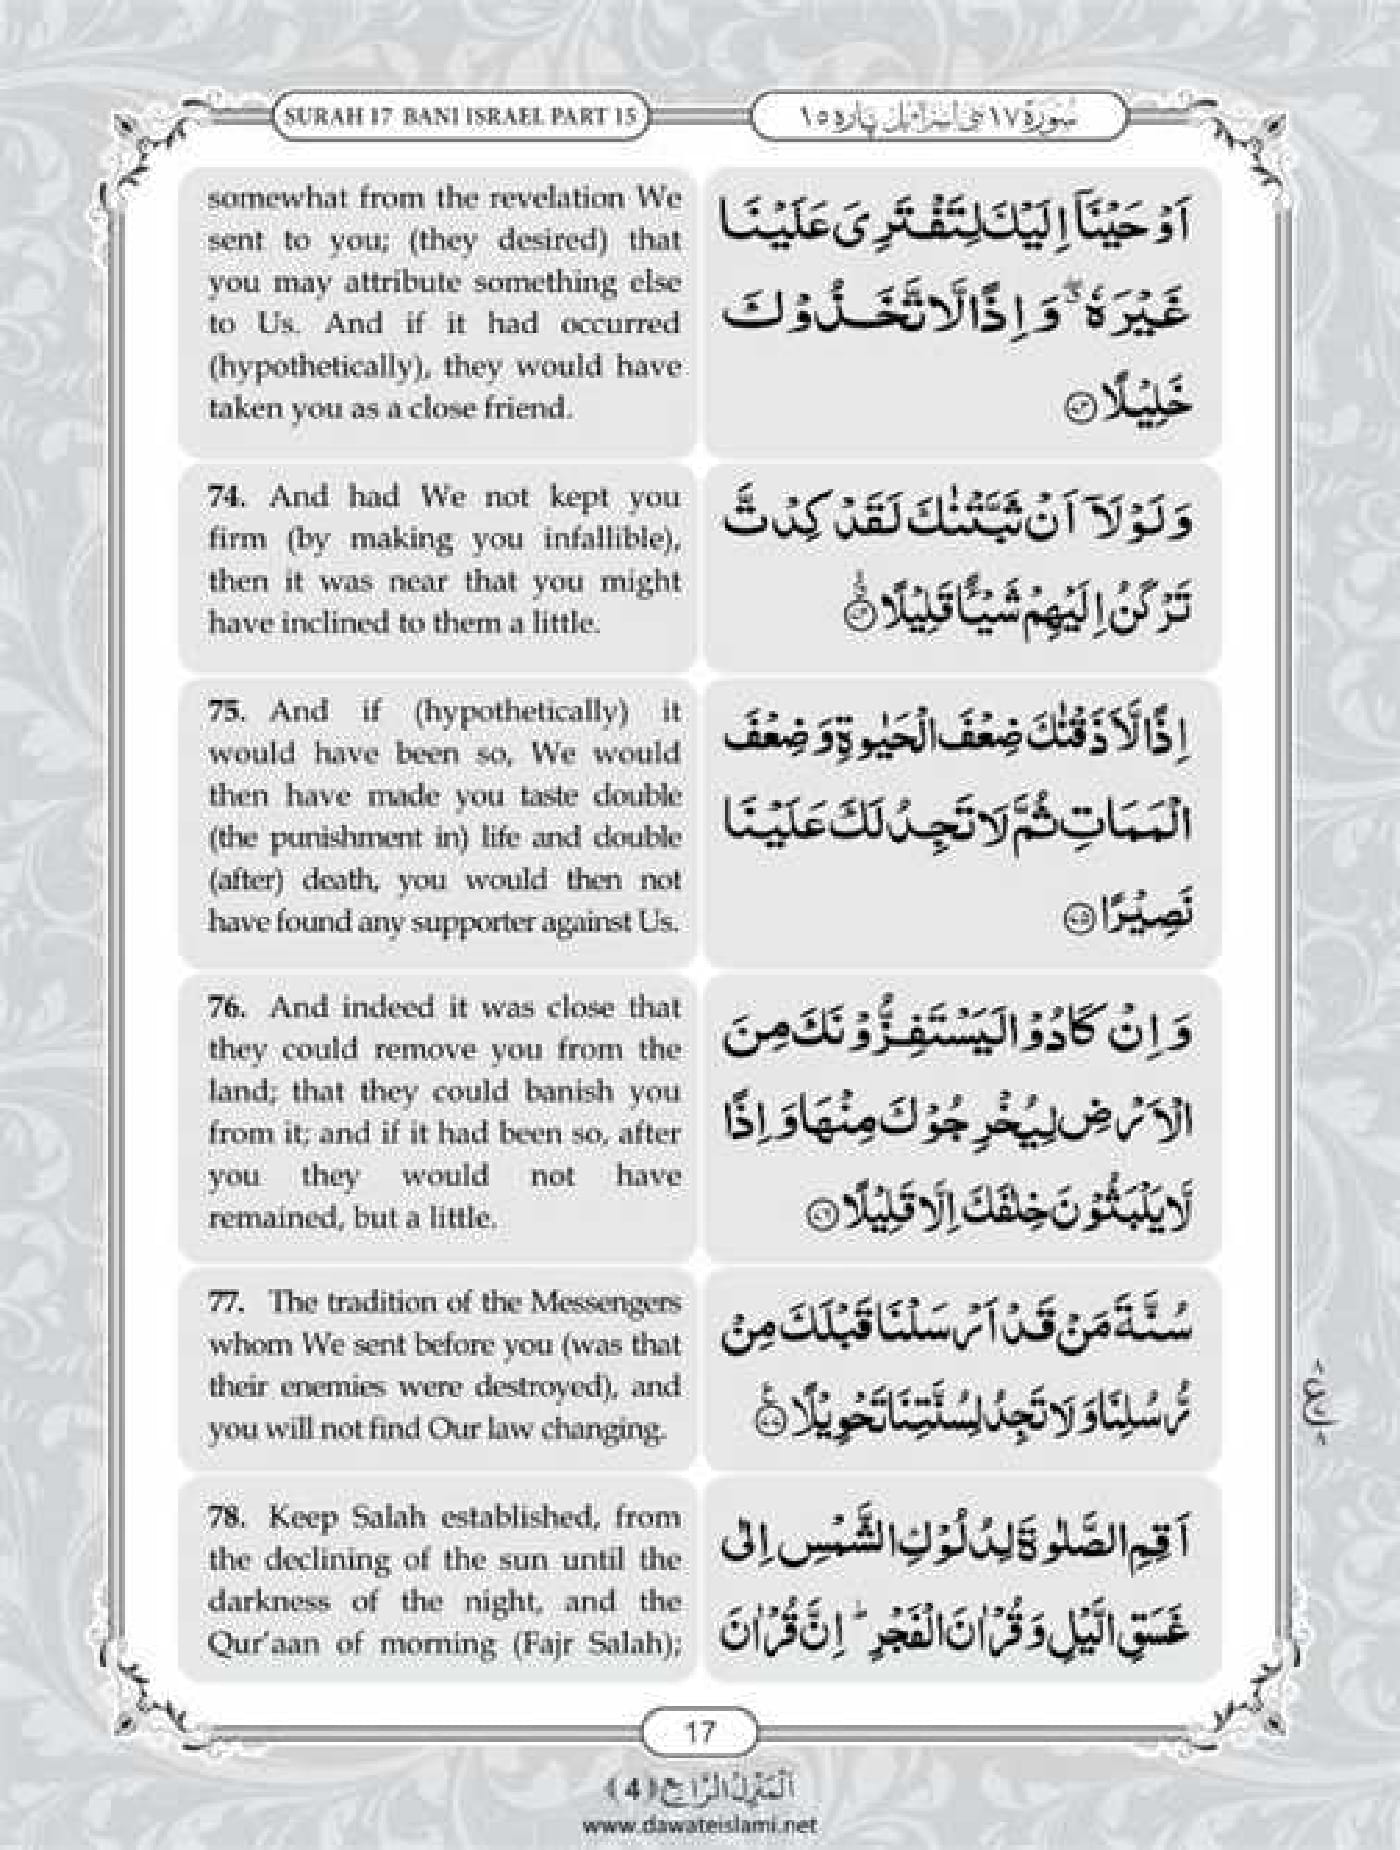 SURAH 17 BANI ISRAEL PART 15
سُوۡرَة ١٧ بَنِیۡ اِسۡرَآءِیۡل پاره ١٥
somewhat from the revelation We
sent to you; (they desired) that
you may attribute something else
to Us. And if it had occurred
(hypothetically), they would have
taken you as a close friend.
اَوْحَيْنَآ اِلَيْكَ لِتَفْتَرِیَ عَلَيْنَا
غَيْرَهٗ ۖۗ وَ اِذًا لَّاتَّخَذُوْكَ
خَلِيْلًا ﴿۷۳﴾
74. And had We not kept you
firm (by making you infallible),
then it was near that you might
have inclined to them a little.
وَ لَوْلَاۤ اَنْ ثَبَّتْنٰكَ لَقَدْ كِدْتَّ
تَرْكَنُ اِلَيْهِمْ شَيْـًٔا قَلِيْلًا ﴿۷۴﴾
75. And if (hypothetically) it
would have been so, We would
then have made you taste double
(the punishment in) life and double
(after) death, you would then not
have found any supporter against Us.
اِذًا لَّاَذَقْنٰكَ ضِعْفَ الْحَيٰوةِ وَ ضِعْفَ
الْمَمَاتِ ثُمَّ لَا تَجِدُ لَكَ عَلَيْنَا
نَصِيْرًا ﴿۷۵﴾
76. And indeed it was close that
they could remove you from the
land; that they could banish you
from it; and if it had been so, after
you they would not have
remained, but a little.
وَ اِنْ كَادُوْا لَيَسْتَفِزُّوْنَكَ مِنَ
الْاَرْضِ لِيُخْرِجُوْكَ مِنْهَا وَ اِذًا
لَّا يَلْبَثُوْنَ خِلٰفَكَ اِلَّا قَلِيْلًا ﴿۷۶﴾
77. The tradition of the Messengers
whom We sent before you (was that
their enemies were destroyed), and
you will not find Our law changing.
سُنَّةَ مَنْ قَدْ اَرْسَلْنَا قَبْلَكَ مِنْ
رُّسُلِنَا وَ لَا تَجِدُ لِسُنَّتِنَا تَحْوِيْلًا ﴿۷۷﴾
٨
ع
٧
٨
78. Keep Salah established, from
the declining of the sun until the
darkness of the night, and the
Qur'aan of morning (Fajr Salah);
اَقِمِ الصَّلٰوةَ لِدُلُوْكِ الشَّمْسِ اِلٰی
غَسَقِ الَّيْلِ وَ قُرْاٰنَ الْفَجْرِ ؕ اِنَّ قُرْاٰنَ
17
اَلْمَنْزِلُ الرَّابِع (4)
www.dawateislami.net